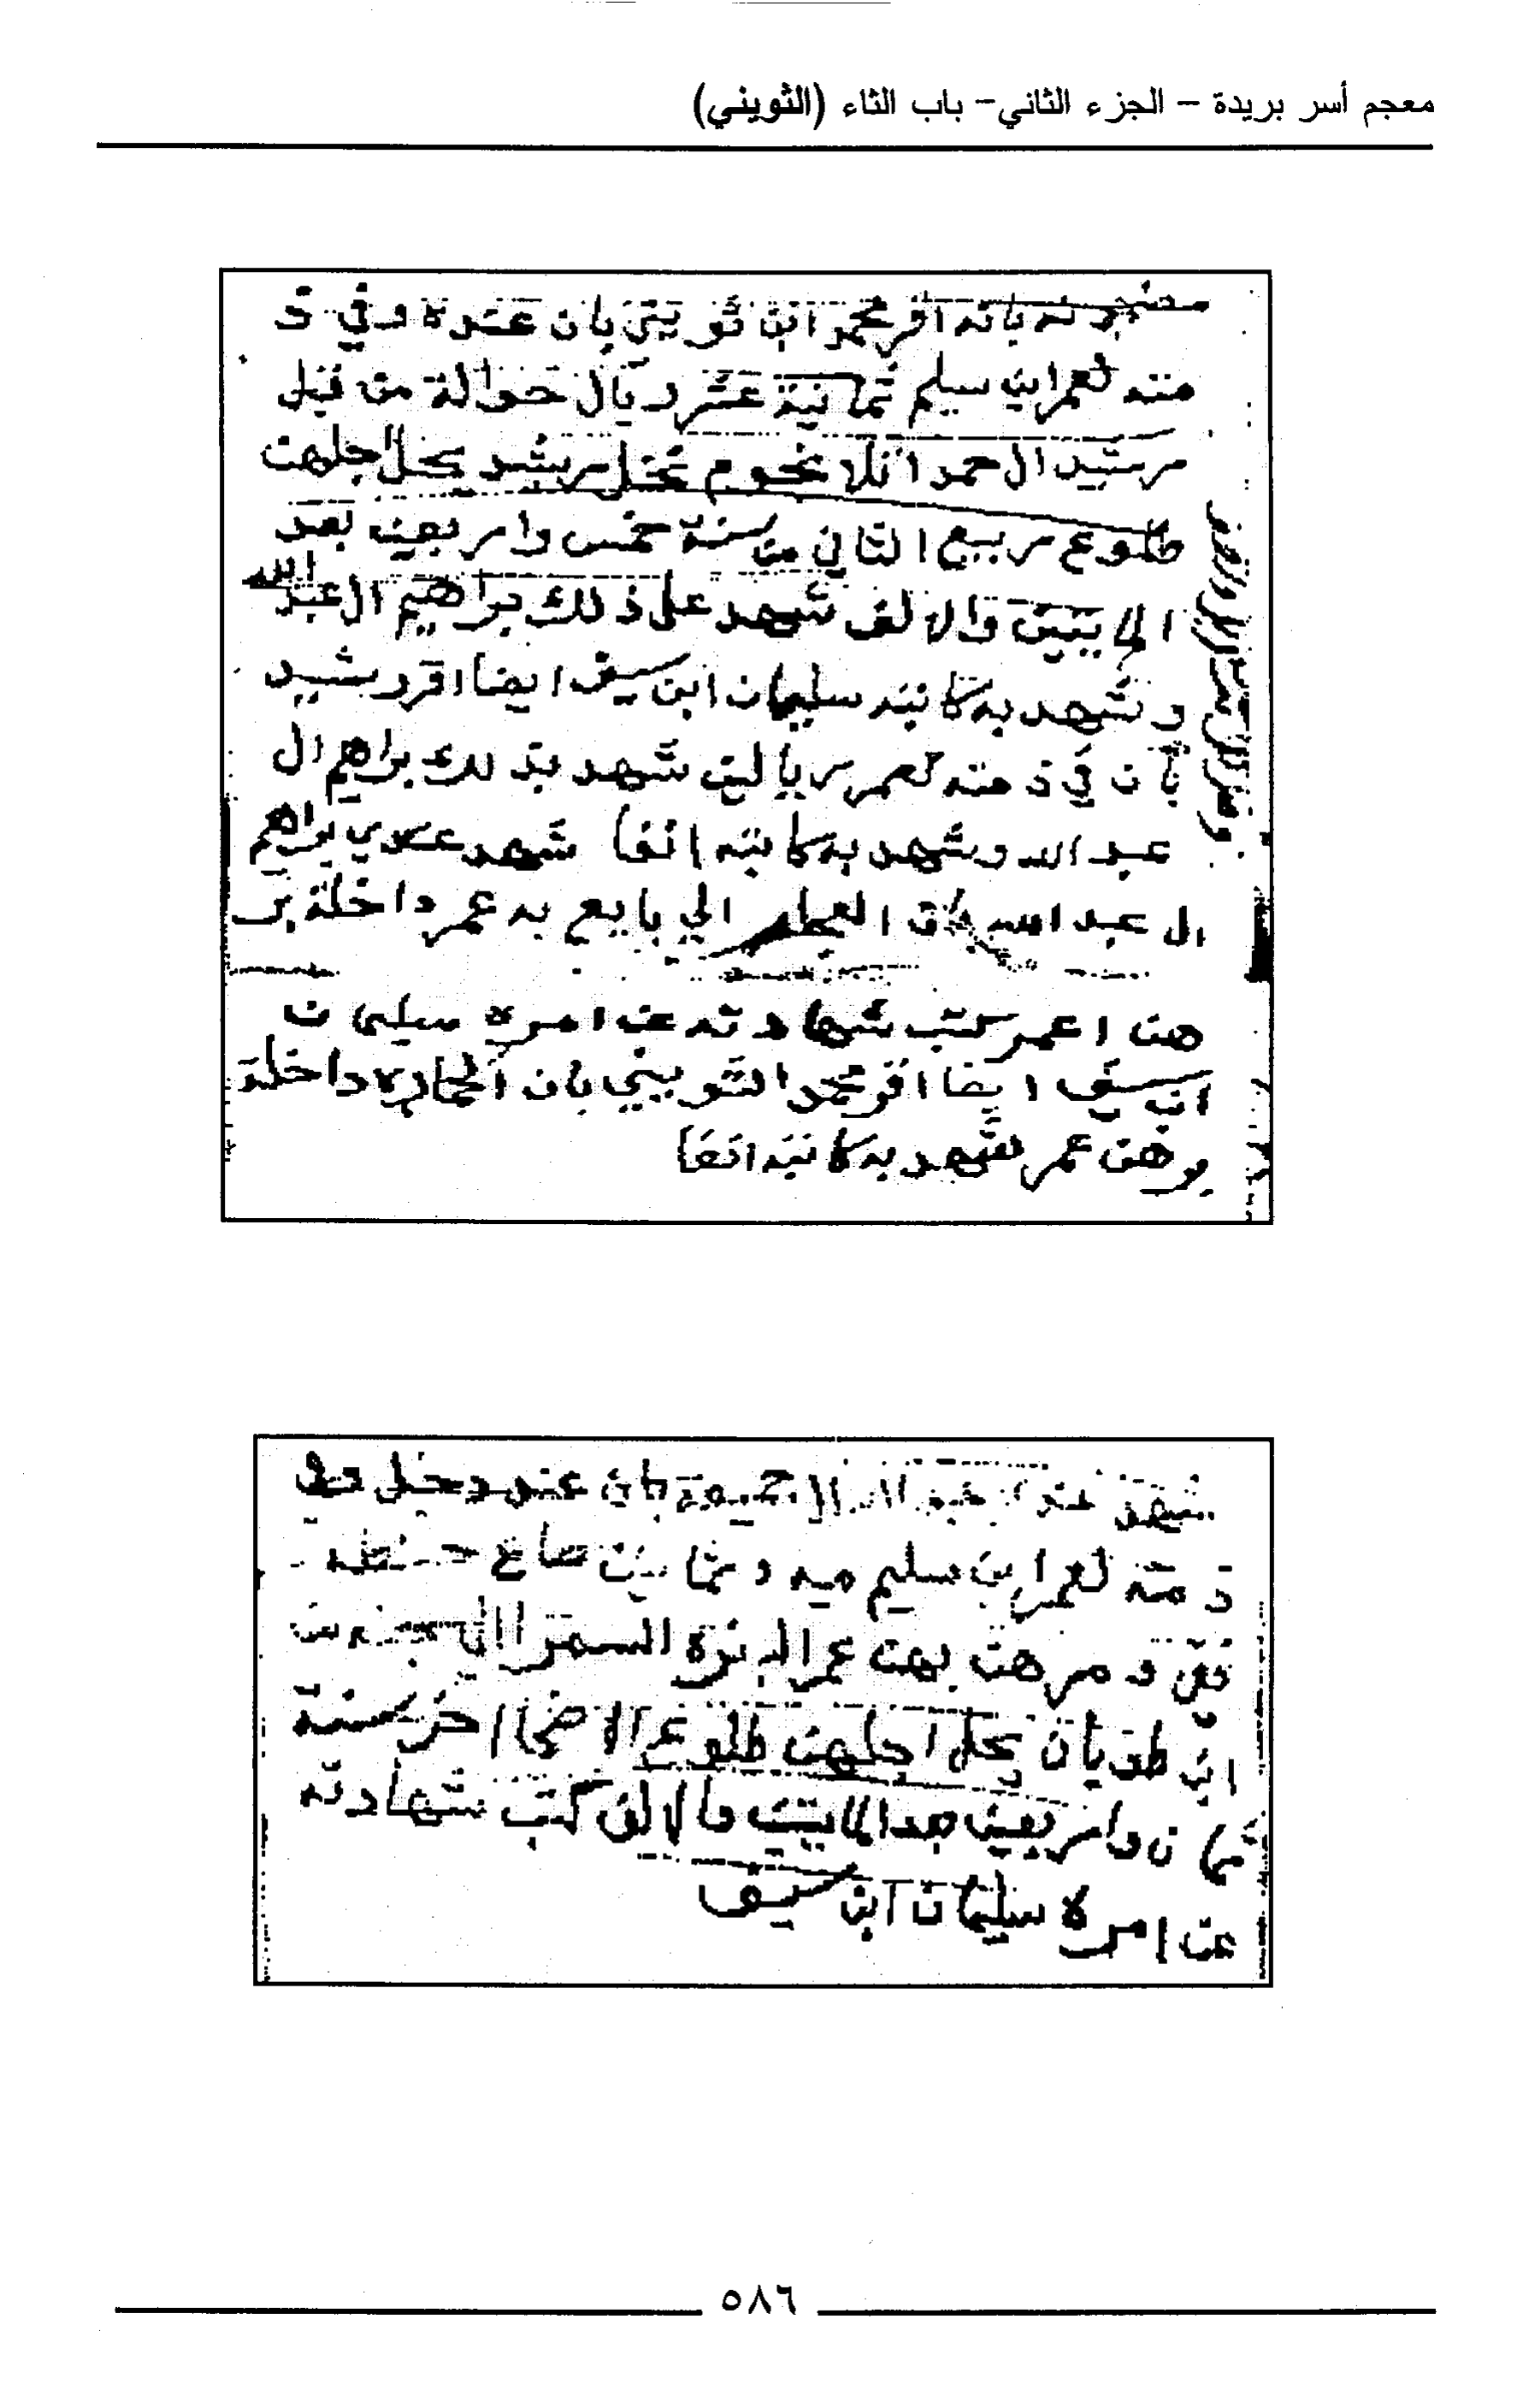 معجم أسر بريدة – الجزء الثاني – باب الثاء (الثويني)
بانه اقر محمد ابن ثويني بان عنده وفي ذ
مته لعمر ابن سليم ثمانية عشر ريال حوالة من قبل
رشيد ال حمد نجوم يحل اجلهن
طلوع ربيع الثاني من سنة خمس واربعين بعد
المايتين والالف شهد على ذلك براهيم ال عبدالله
وشهد به كاتبه سليمان ابن سيف ايضا اقر رشيد
بان في ذمته لعمر ريالين شهد بذلك براهيم ال
عبد الله وشهد به كاتبه انفا شهد عندي براهيم
ال عبد الله بان الي بايع به عمر داخلة بر
هن اعمر كتب شهادته عن امره سليمان
ابن سيف ايضا اقر محمد الثويني بان داخلة
برهن عمر شهد به كاتبه انفا
شهد عندي بان عند دخيل وفي
ذمته لعمر ابن سليم ميه وثمانين صاع
رهن بهن عمر السمرا
بان يحل اجلهن طلوع الاضحى اخر سنة
ثمان واربعين بعد المايتين والالف كتب شهادته
عن امره سليمان ابن سيف
٥٨٦